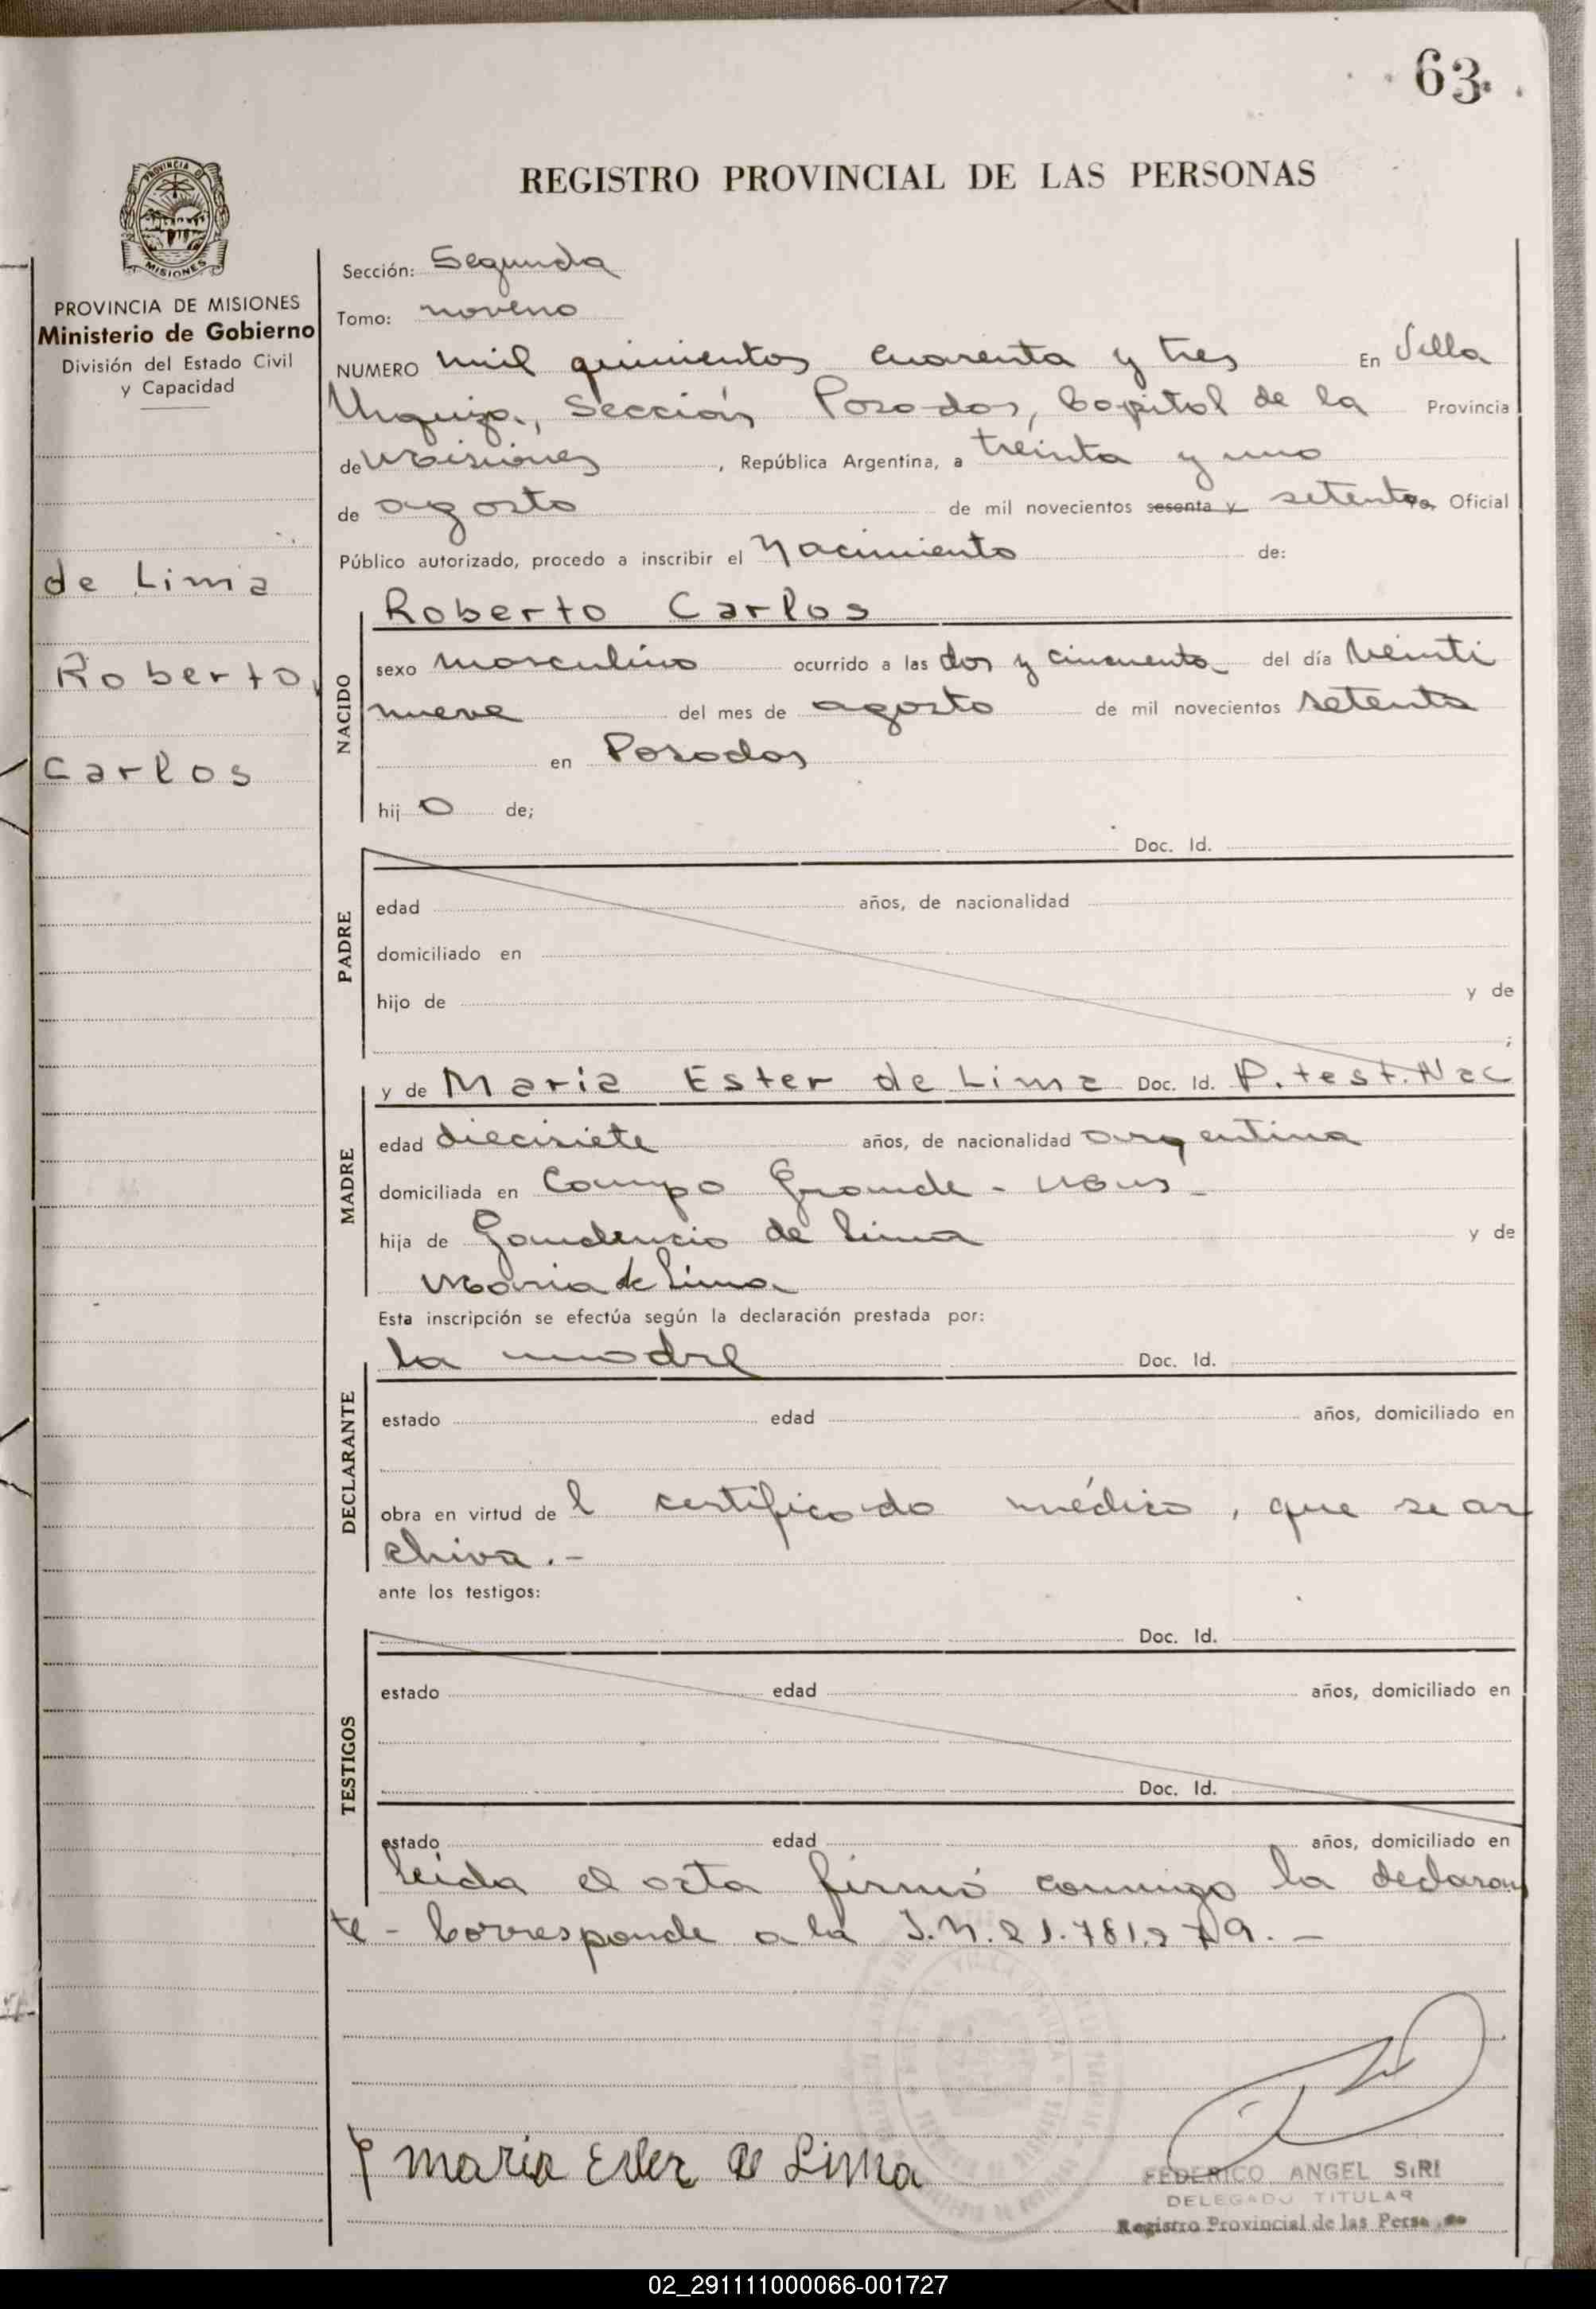 63.
REGISTRO PROVINCIAL DE LAS PERSONAS
PROVINCIA DE MISIONES
MISIONES
PROVINCIA DE MISIONES
Ministerio de Gobierno
División del Estado Civil
y Capacidad
de Lima
Roberto,
Carlos
Sección: Segunda
Tomo: noveno
NUMERO mil quinientos cuarenta y tres En Villa
Urquiza, Sección Posadas, Capital de la Provincia
de Misiones, República Argentina, a treinta y uno
de agosto de mil novecientos sesenta y setenta Oficial
Público autorizado, procedo a inscribir el Nacimiento de:
NACIDO
Roberto Carlos
sexo masculino ocurrido a las dos y cincuenta del día veinti
nueve del mes de agosto de mil novecientos setenta
en Posadas
hij o de;
PADRE
Doc. Id.
edad años, de nacionalidad
domiciliado en
hijo de y de
;
MADRE
y de Maria Ester de Lima Doc. Id. P. test. Nac
edad diecisiete años, de nacionalidad argentina
domiciliada en Campo Grande - Mnes -
hija de Gaudencio de Lima y de
Maria de Lima
Esta inscripción se efectúa según la declaración prestada por:
DECLARANTE
la madre Doc. Id.
estado edad años, domiciliado en
obra en virtud de l certificado médico, que se ar
chiva.-
ante los testigos:
TESTIGOS
Doc. Id.
estado edad años, domiciliado en
Doc. Id.
estado edad años, domiciliado en
Leida el acta firmó conmigo la declaran
te - Corresponde a la
maria Ester de Lima
FEDERICO ANGEL SIRI
DELEGADO TITULAR
Registro Provincial de las Perso
02_291111000066-001727